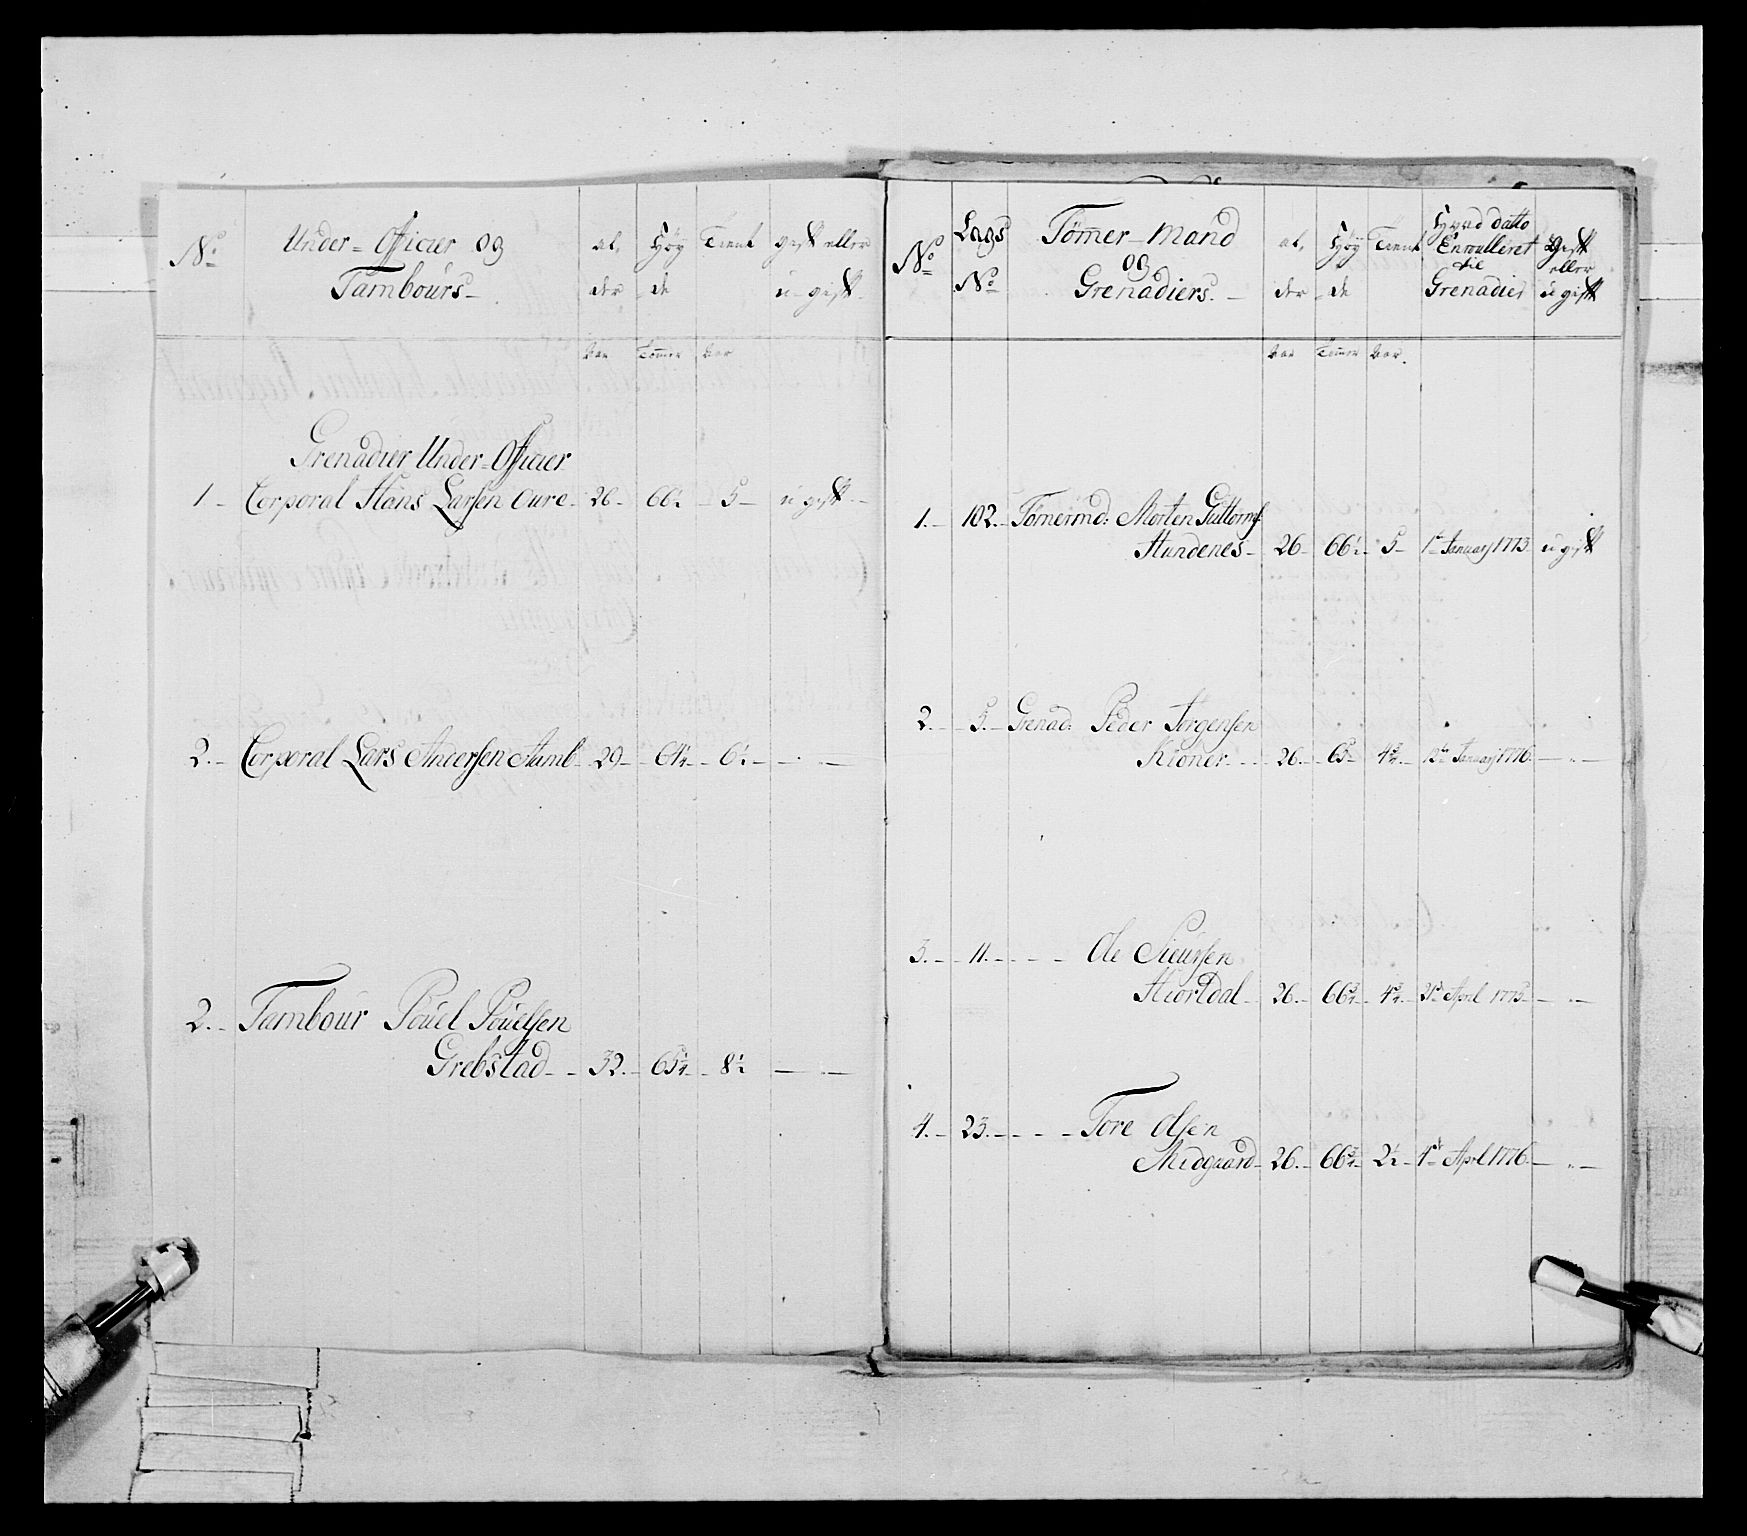 No
Under=Officier og
Tambours
al,
der
Høy
de
Tient
gift eller
u-gift
Aar
Tommer
Aar
Grenadier Under=Officier
1 Corporal Hans Larsen Aure 26 66½ 5 u gift
2. Corporal Lars Andersen Aamb 29 64¼ 6½ — " —
2. Tambour Pouel Pouelsen
Grebstad 32. 65¼ 8½ — " —
No
Lags
No
Tømer-mand
og
Grenadiers.
al,
der
Høy
de
Tient
Hvad datto
Enroulleret
til
Grenadier
Gift
eller
u gift
Aar
Tommer
Aar.
1. 102. Tømermd: Morten Guttormss:
Hundenes 26 66½ 5 1st January 1773 u gift
2. 5. Grenad: Peder Jørgensen
Kloner 26. 65 4¾ 12te January 1776. — " —
3. 11. Ole Sieursen
Hiortdal 26. 66¾ 4¾ 21de April 1775 — " —
4. 23. Tore Olsen
Midgaard 26. 66¾ 2½ 1st April 1776. — " —